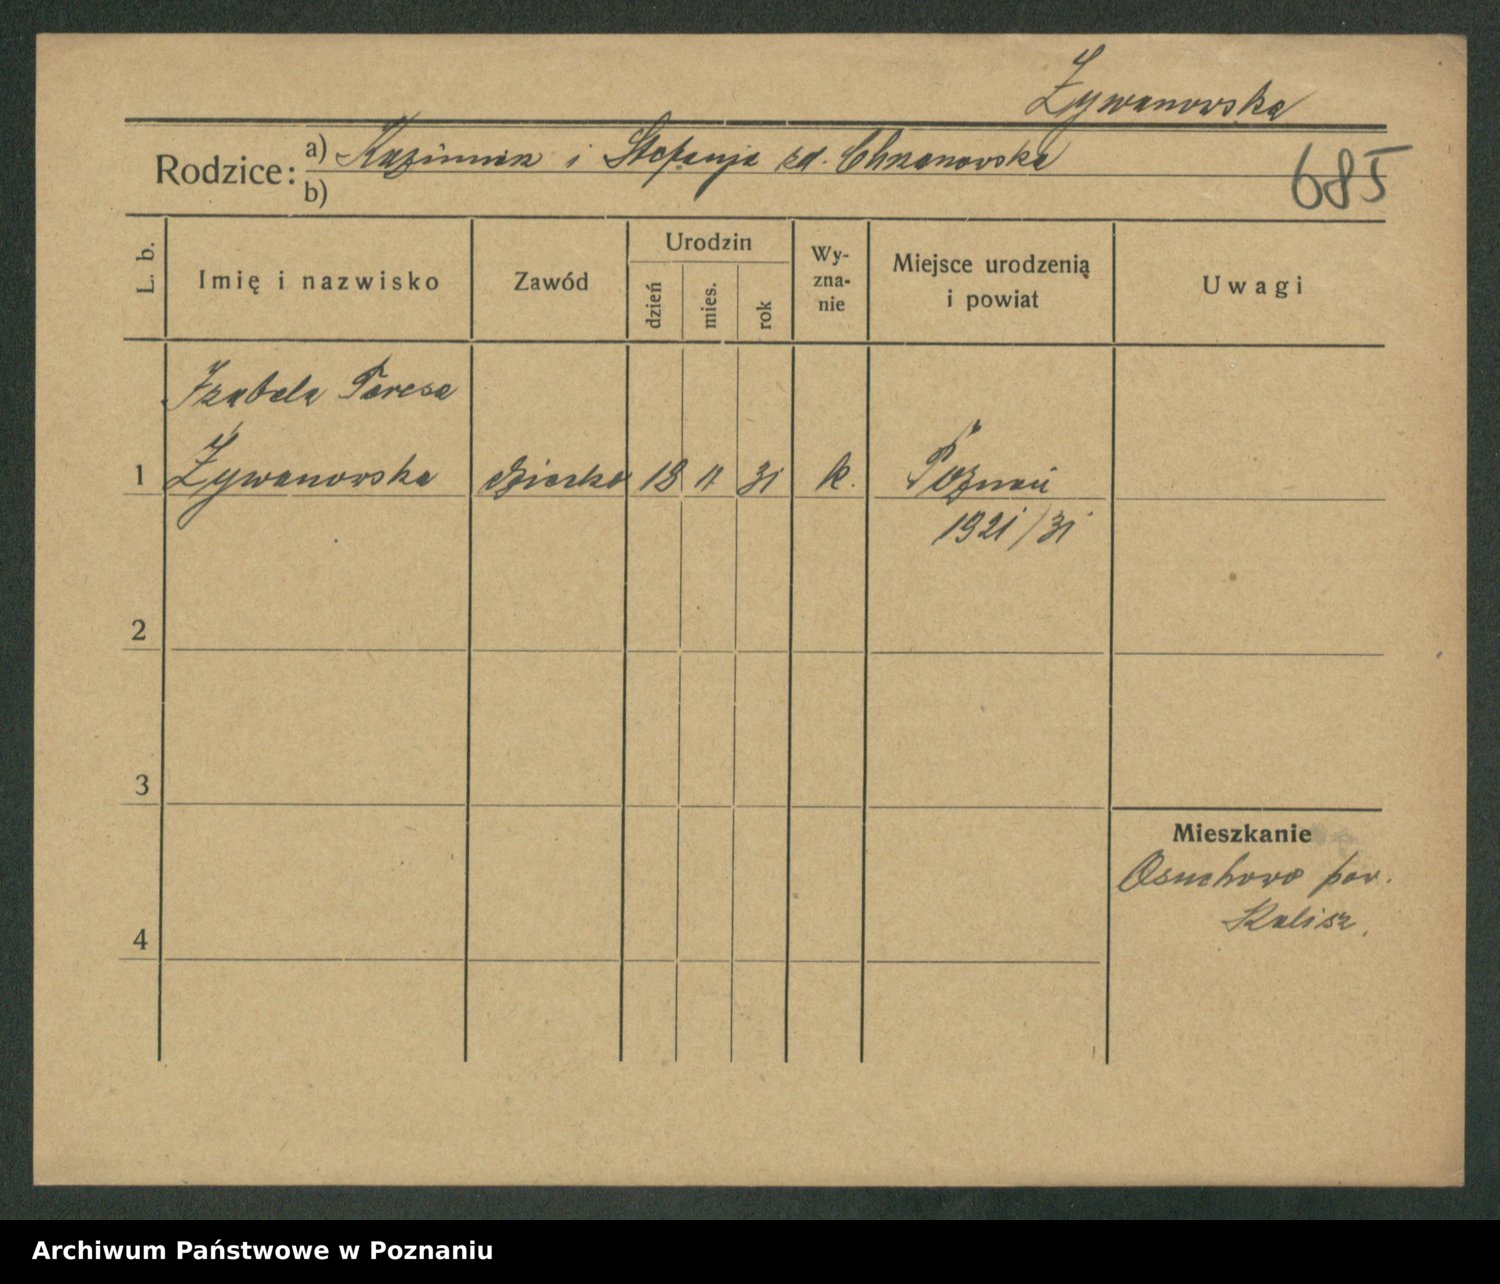 Żywanowska
Rodzice: a) Kazimierz i Stefanja zd. Chrzanowska
b)
685
L. b.
Imię i nazwisko
Zawód
Urodzin
dzień
mies.
rok
Wy-
zna-
nie
Miejsce urodzenią
i powiat
Uwagi
Izabela Teresa
1 Żywanowska dziecko 18 11 31 k. Poznań
1921/31
2
3
Mieszkanie
Osuchowo pow.
Kalisz.
4
Archiwum Państwowe w Poznaniu